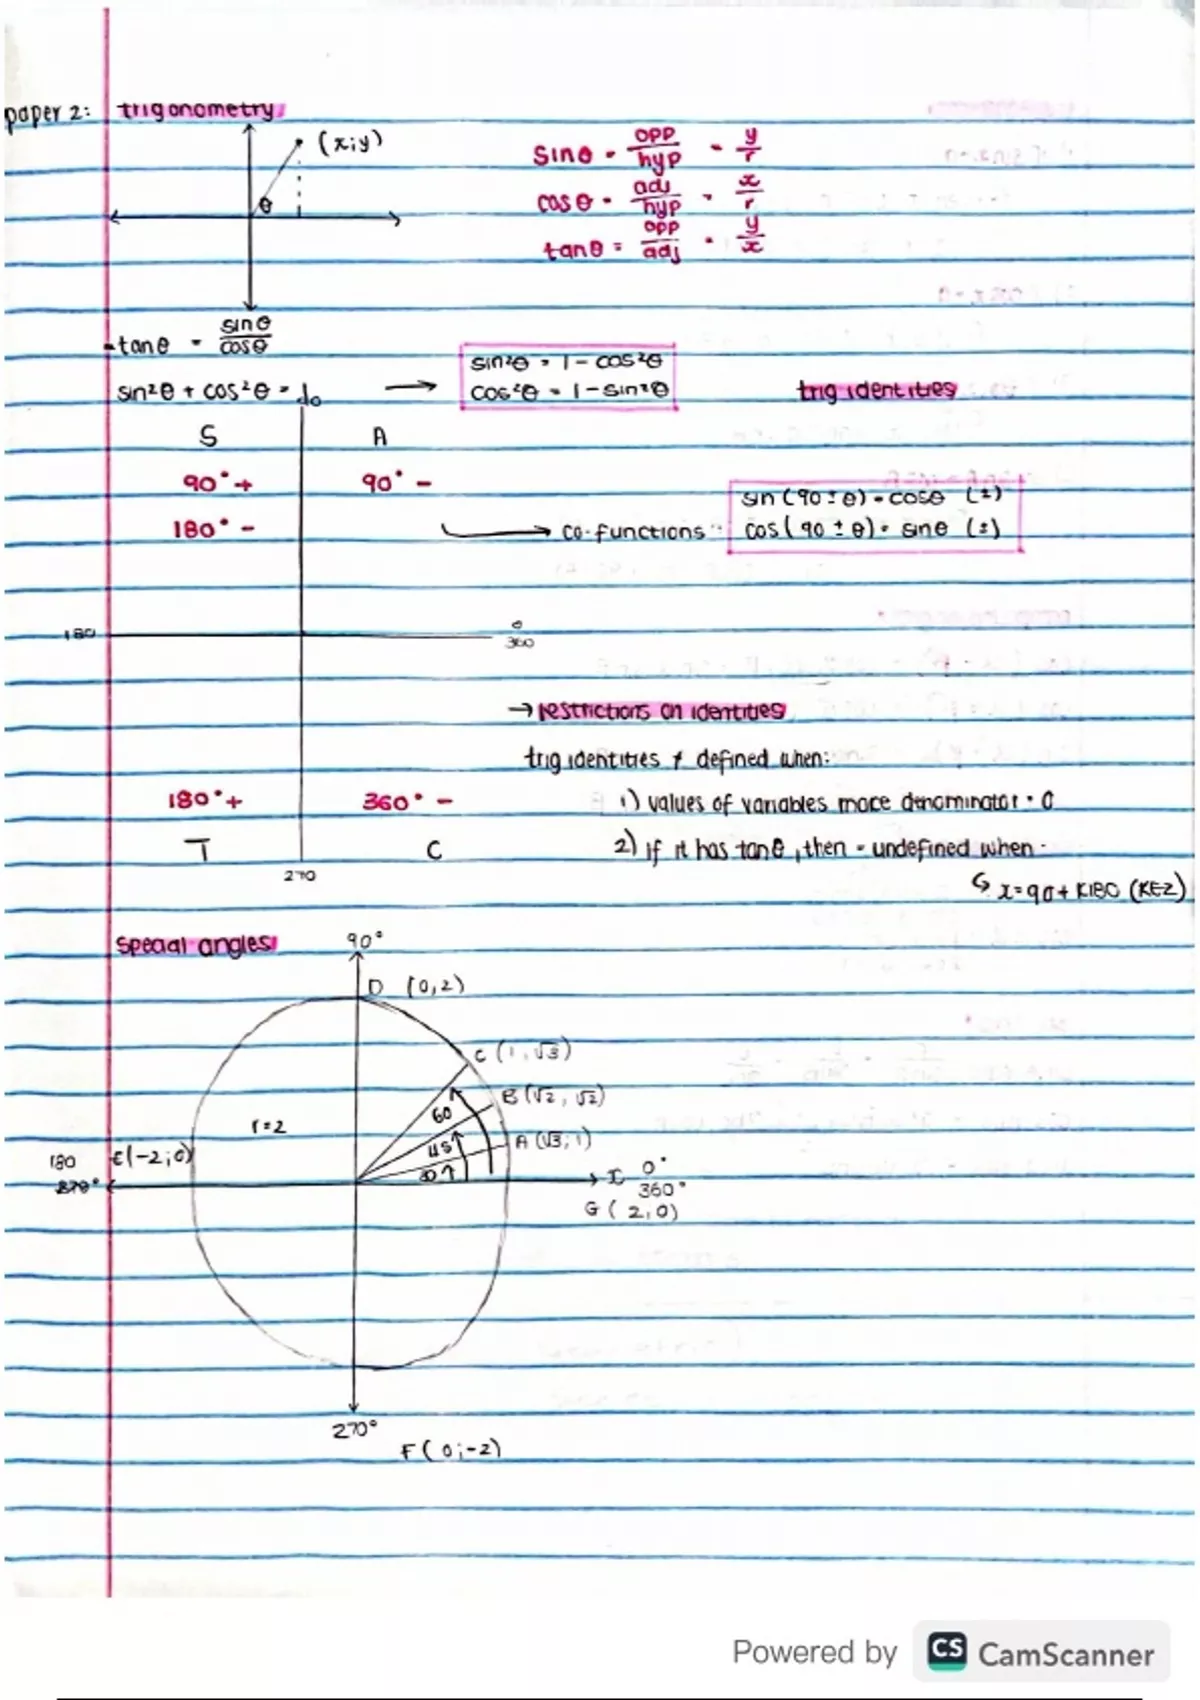 paper 2: trigonometry
(x;y)
θ
sinθ = opp/hyp = y/r
cosθ = adj/hyp = x/r
tanθ = opp/adj = y/x
tanθ = sinθ/cosθ
sin²θ + cos²θ = 1
sin²θ = 1 - cos²θ
cos²θ = 1 - sin²θ
trig identities
S A
90° + 90° -
180° -
co-functions
sin (90 ± θ) = cosθ (±)
cos (90 ± θ) = sinθ (±)
180 0
360
→ restrictions on identities
trig identities ≠ defined when:
180° + 360° - 1) values of variables make denominator = 0
T C 2) if it has tanθ, then = undefined when -
270
x = 90 + k180 (KEZ)
special angles
90°
D (0,2)
C (1, √3)
B (√2, √2)
A (√3; 1)
r = 2
60
45
30
180 E(-2;0)
270°
0°
360°
G (2,0)
270°
F (0;-2)
Powered by CS CamScanner